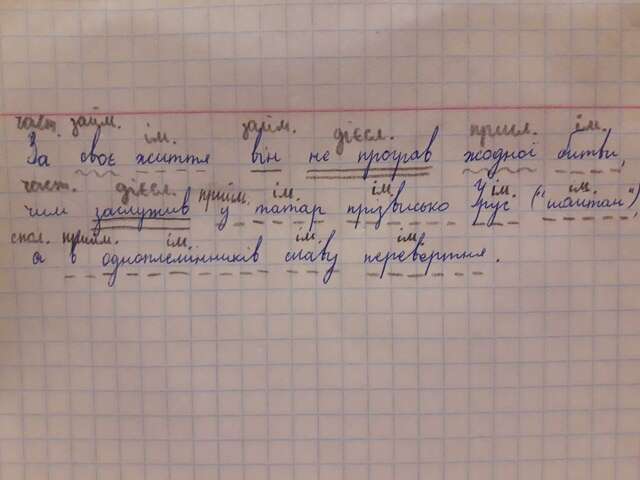 част. займ. ім. займ. дієсл. присл. ім.
За своє життя він не програв жодної битви,
част. дієсл. прийм. ім. ім. ім. ім.
чим заслужив у татар призвисько Урус ("шайтан"),
спол. прийм. ім. ім. ім.
а в одноплемінників славу перевертня.